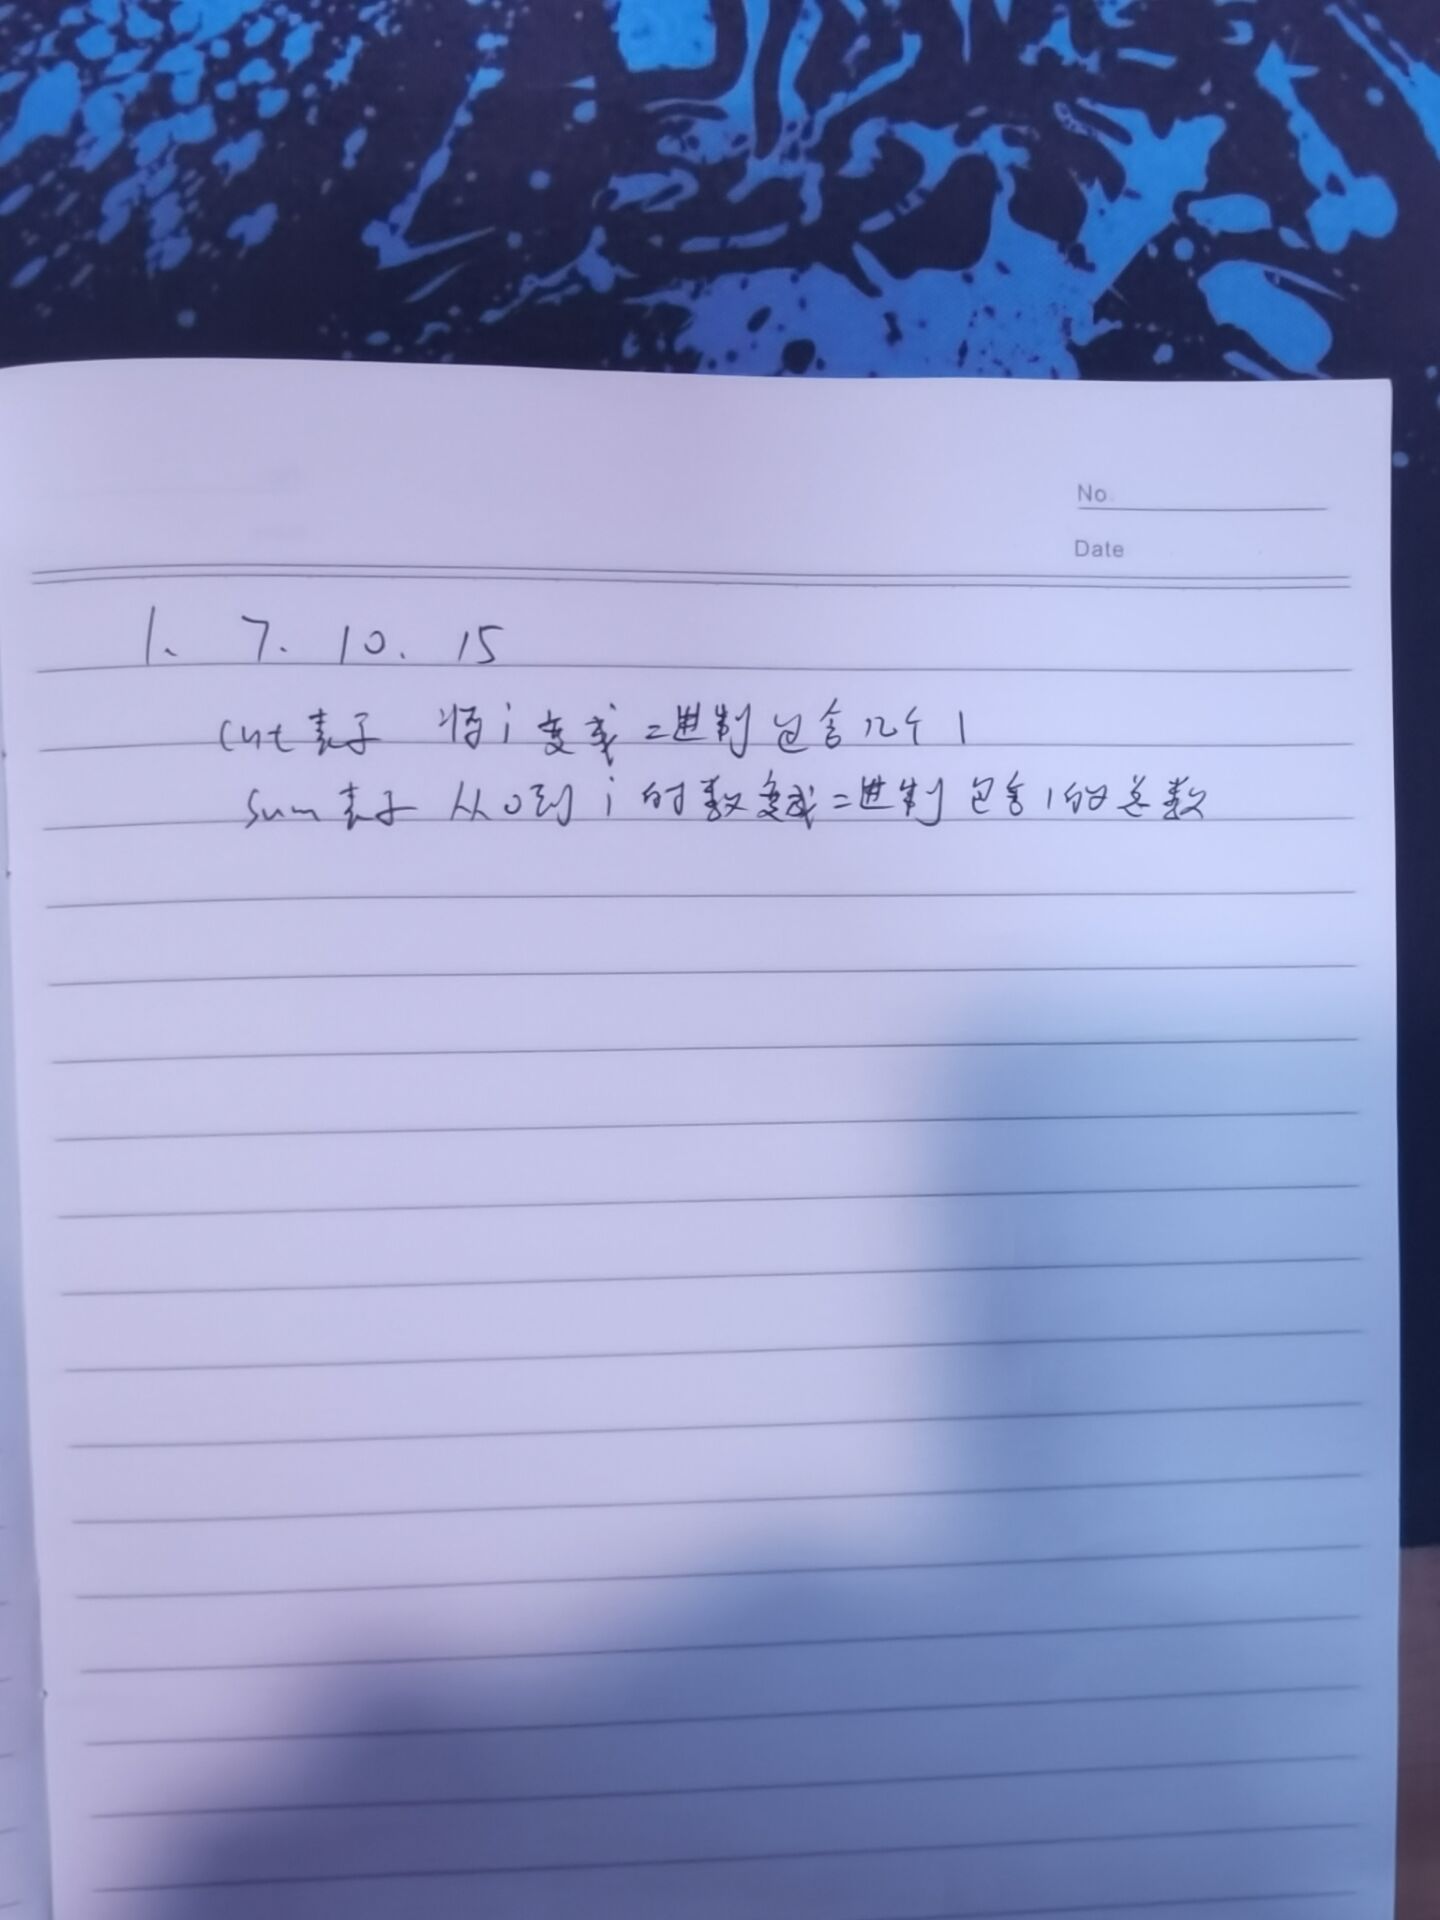 No.
Date
1. 7. 10. 15
cnt表示 将i变成二进制包含几个1
sum表示 从0到i的数变成二进制包含1的总数